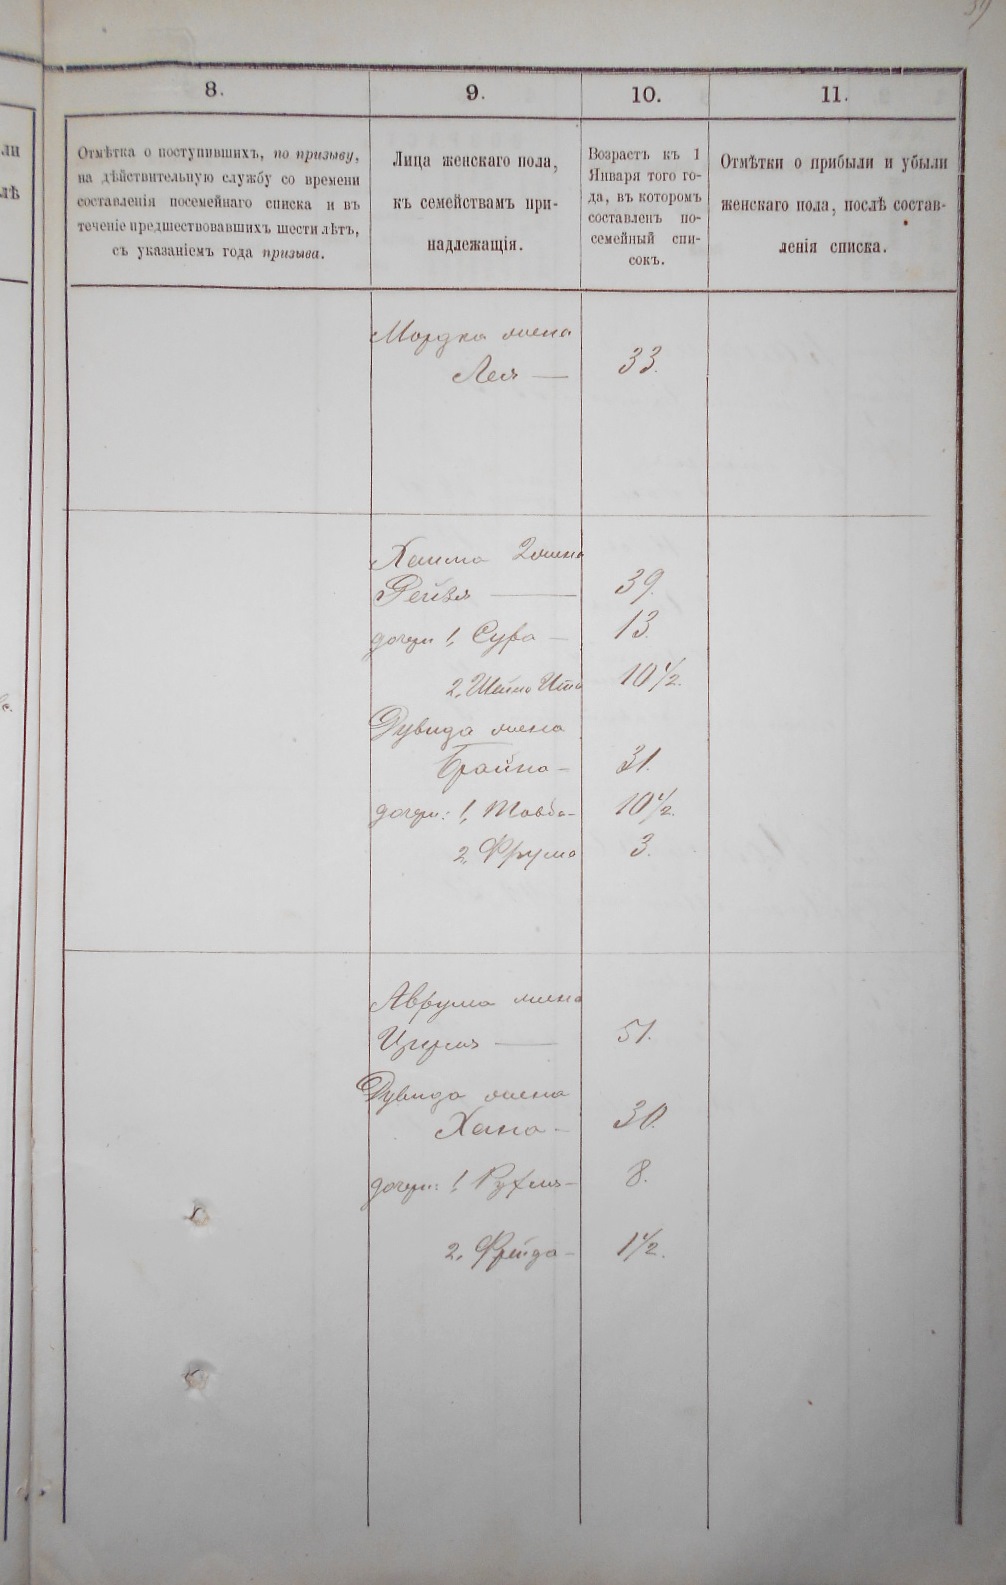 8.
9.
10.
11.
Отмѣтка о поступившихъ, по призыву,
на дѣйствительную службу со времени
составленія посемейнаго списка и въ
теченіе предшествовавшихъ шести лѣтъ,
съ указаніемъ года призыва.
Лица женскаго пола,
къ семействамъ при-
надлежащія.
Возрастъ къ 1
Января того го-
да, въ которомъ
составленъ по-
семейный спи-
сокъ.
Отмѣтки о прибыли и убыли
женскаго пола, послѣ состав-
ленія списка.
ли
лѣ
Мордка жена
Лея — 33.
Хаима 2 жена
Рейзя — 39.
дочери 1, Сура — 13.
2, Шейна Ита 10 1/2.
Дувида жена
Брайна — 31.
дочери: 1, Товба — 10 1/2.
2, Фрума 3.
Аврума жена
Цирля — 51.
Дувида жена
Хана — 30.
дочери: 1, Рухля — 8.
2, Фрейда — 1 1/2.